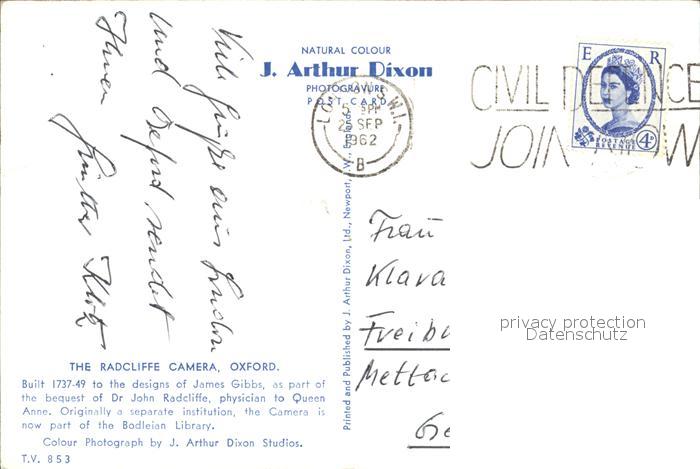 Viele Grüße aus London
und Oxford sendet
Ihnen
Günther Klotz
NATURAL COLOUR
J. Arthur Dixon
PHOTOGRAVURE
POST CARD
LONDON S.W.1.
5 PM
SEP
1962
B
CIVIL DEFENCE
JOIN NOW
E R
POSTAGE
REVENUE
4D
Printed and Published by J. Arthur Dixon, Ltd., Newport, I.W., England
Frau
Klara
Freibu
privacy protection
Datenschutz
THE RADCLIFFE CAMERA, OXFORD.
Built 1737-49 to the designs of James Gibbs, as part of
the bequest of Dr John Radcliffe, physician to Queen
Anne. Originally a separate institution, the Camera is
now part of the Bodleian Library.
Colour Photograph by J. Arthur Dixon Studios.
T.V. 853